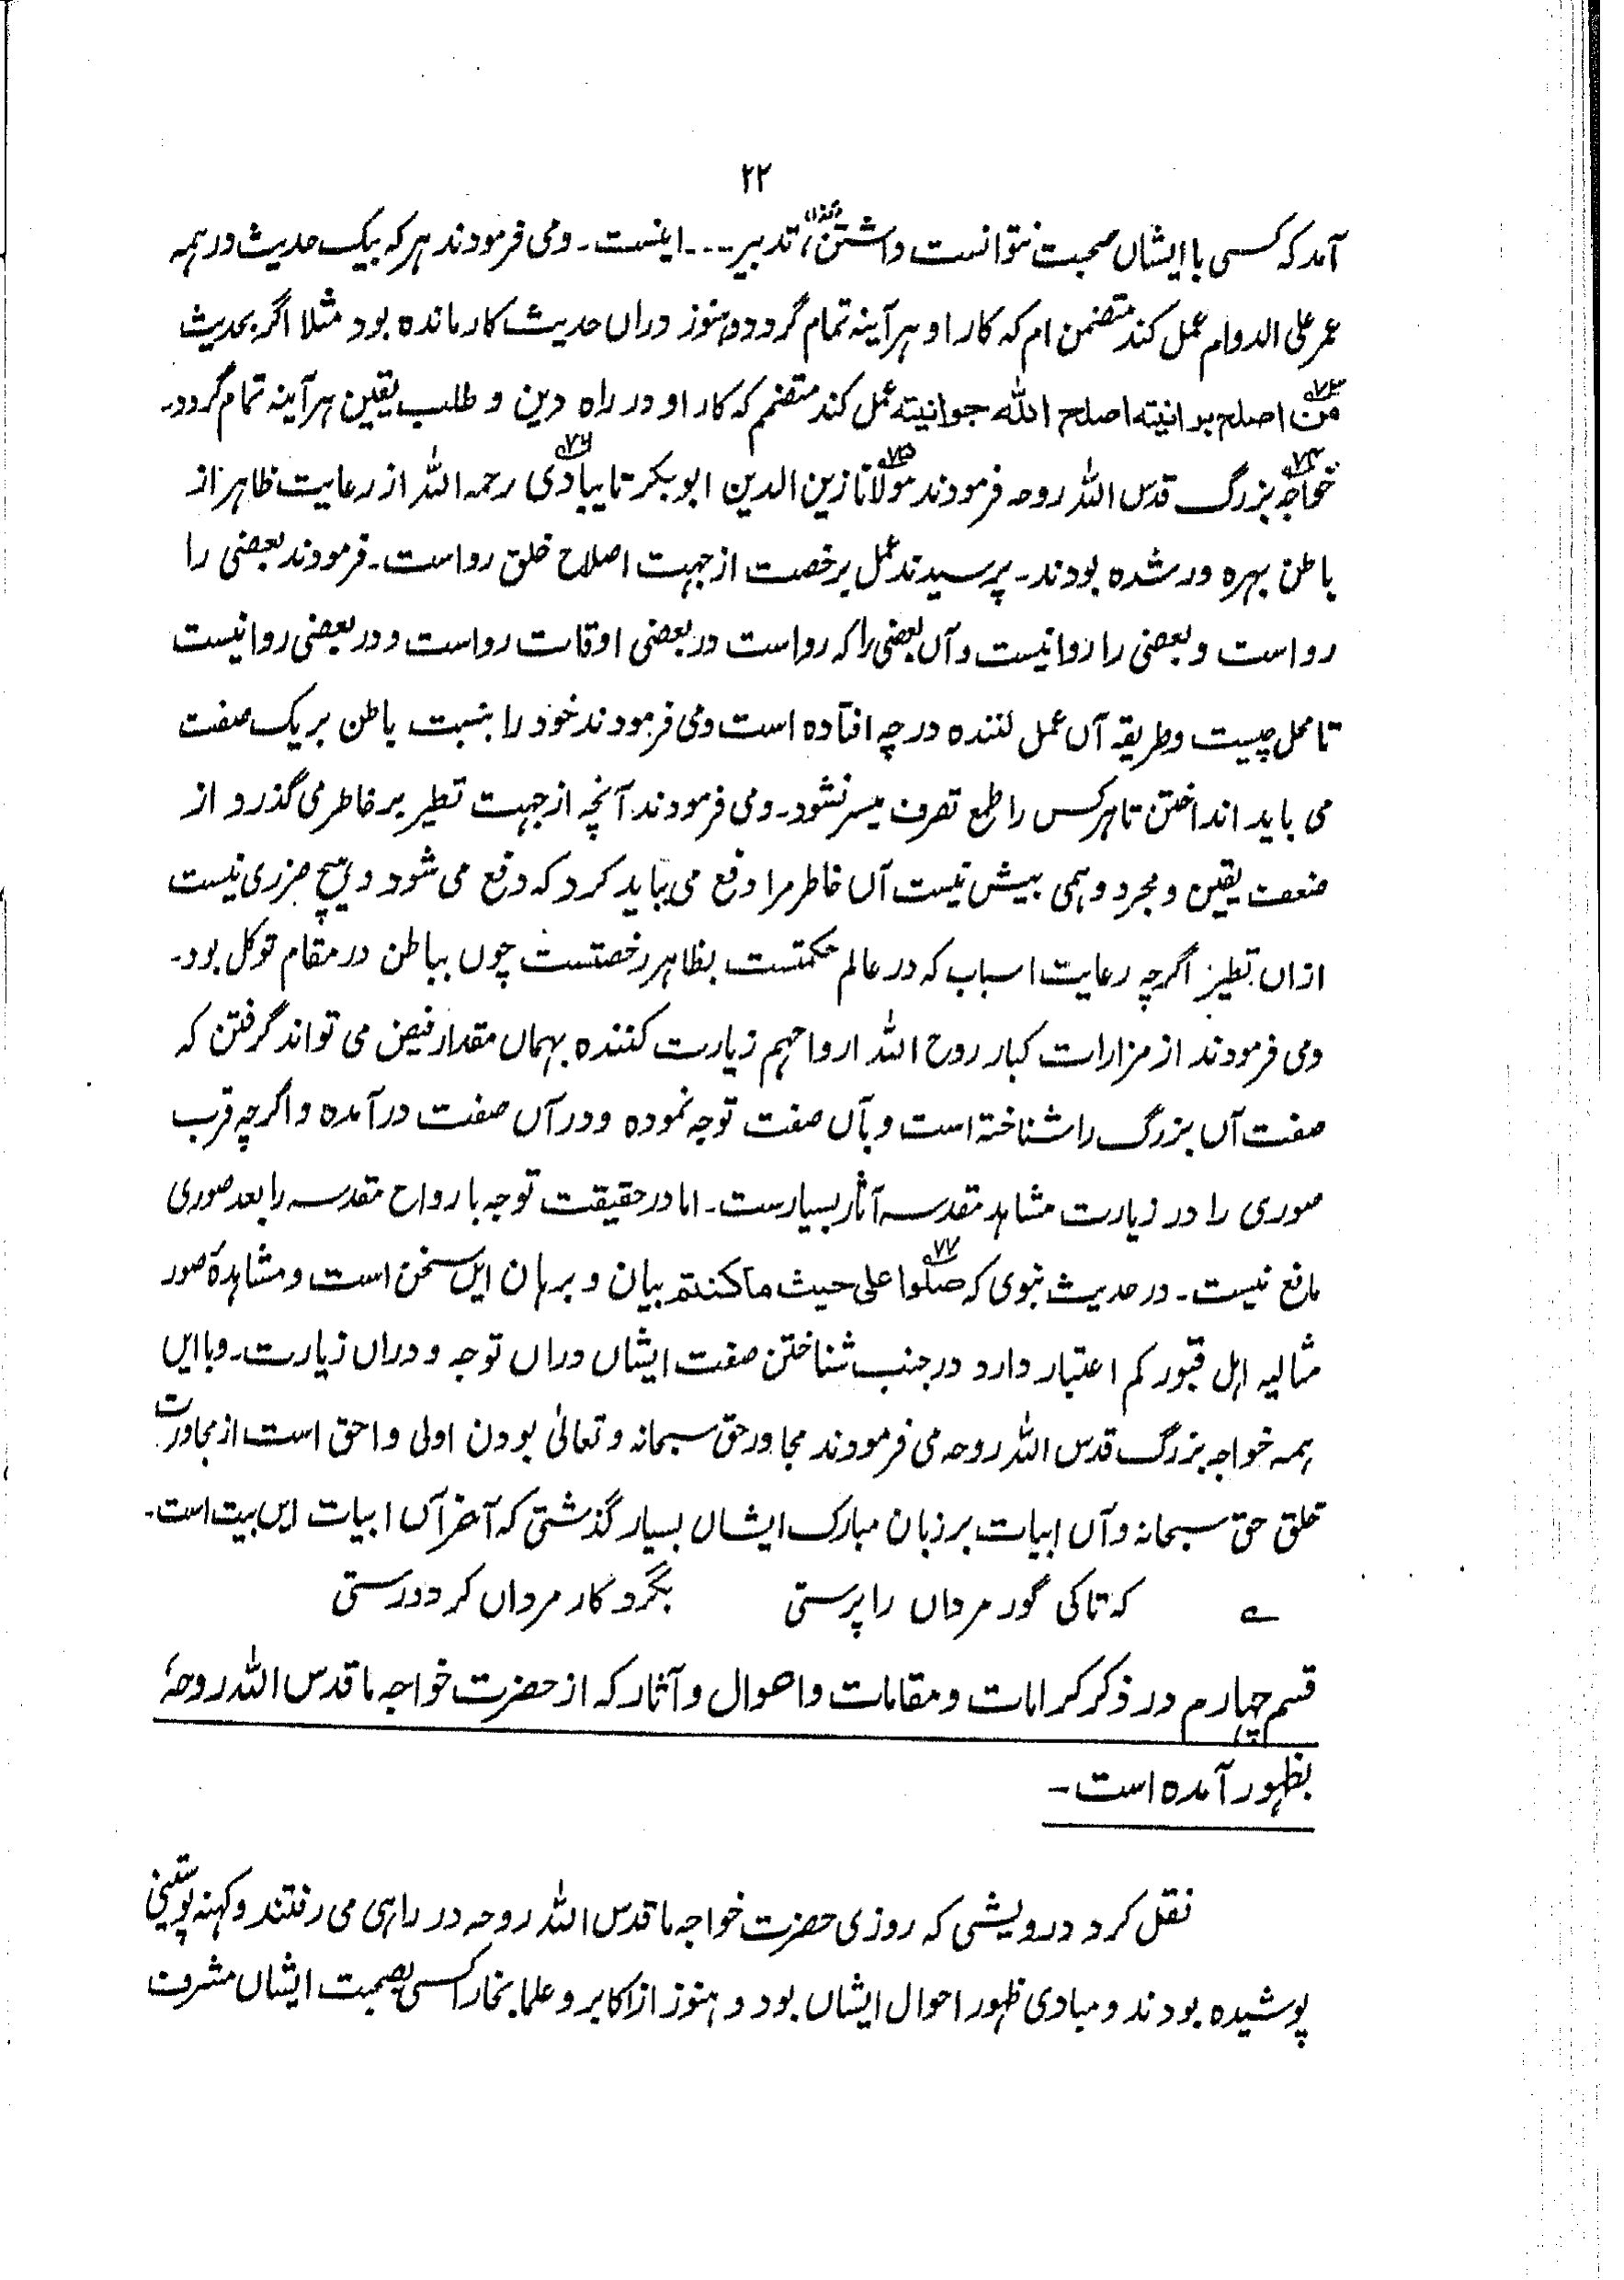 ۲۲
آمد که کسی با ایشاں صحبت نتوانست داشتن، تدبیر --- اینست ـ ومی فرمودند هرکه بیک حدیث در همه
عمر علی الدوام عمل کند متضمن ام که کار او هر آینه تمام گردد و هنوز دراں حدیث کار مانده بود مثلا اگر بحدیث
من اصلح برانیته اصلح الله جوانیته عمل کند متضنم که کار او در راه دین و طلب یقین هر آینه تمام گردد۔
خواجه بزرگ قدس الله روحه فرمودند مولانا زین الدین ابوبکر تایبادی رحمه الله از رعایت ظاهر از
باطن بهره ور شده بودند ـ پرسیدند عمل برخصت از جهت اصلاح خلق رواست ـ فرمودند بعضی را
رواست و بعضی را روا نیست و آں بعضی را که رواست در بعضی اوقات رواست و در بعضی روا نیست
تا محل چیست و طریقه آں عمل کننده در چه افتاده است ومی فرمودند خود را بنسبت باطن بر یک صفت
می باید انداختن تا هرکس را طمع تصرف میسر نشود ـ ومی فرمودند آنچه از جهت تطیر بر خاطر می گذرد از
ضعف یقین و مجرد وهمی بیش نیست آں خاطر مرا دفع می بباید کرد که دفع می شود و هیچ ضرری نیست
ازاں تطیر اگرچه رعایت اسباب که در عالم حکمتست بظاهر رخصتست چوں بباطن در مقام توکل بود۔
ومی فرمودند از مزارات کبار روح الله ارواحهم زیارت کننده بهماں مقدار فیض می تواند گرفتن که
صفت آں بزرگ را شناخته است و بآں صفت توجه نموده و در آں صفت در آمده و اگرچه قرب
صوری را در زیارت مشاهد مقدسه آثار بسیارست ـ اما در حقیقت توجه بارواح مقدسه را بعد صوری
مانع نیست ـ در حدیث نبوی که صلوا علی حیث ما کنتم بیان و برهان ایں سخن است و مشاهدهٔ صور
مثالیه اهل قبور کم اعتبار دارد در جنب شناختن صفت ایشاں دراں توجه و دراں زیارت ـ وبا ایں
همه خواجه بزرگ قدس الله روحه می فرمودند مجاور حق سبحانه و تعالیٰ بودن اولی و احق است از مجاورت
خلق حق سبحانه و آں ابیات بر زبان مبارک ایشاں بسیار گذشتی که آخر آں ابیات ایں بیت است۔
؎ که تا کی گور مرداں را پرستی بگرد کار مرداں گرد و رستی
قسم چهارم در ذکر کرامات و مقامات و احوال و آثار که از حضرت خواجه ما قدس الله روحهٗ
بظهور آمده است ـ
نقل کرد درویشی که روزی حضرت خواجه ما قدس الله روحه در راهی می رفتند و کهنه پوستینی
پوشیده بودند و مبادی ظهور احوال ایشاں بود و هنوز از اکابر و علما بخارا کسی بصحبت ایشاں مشرف